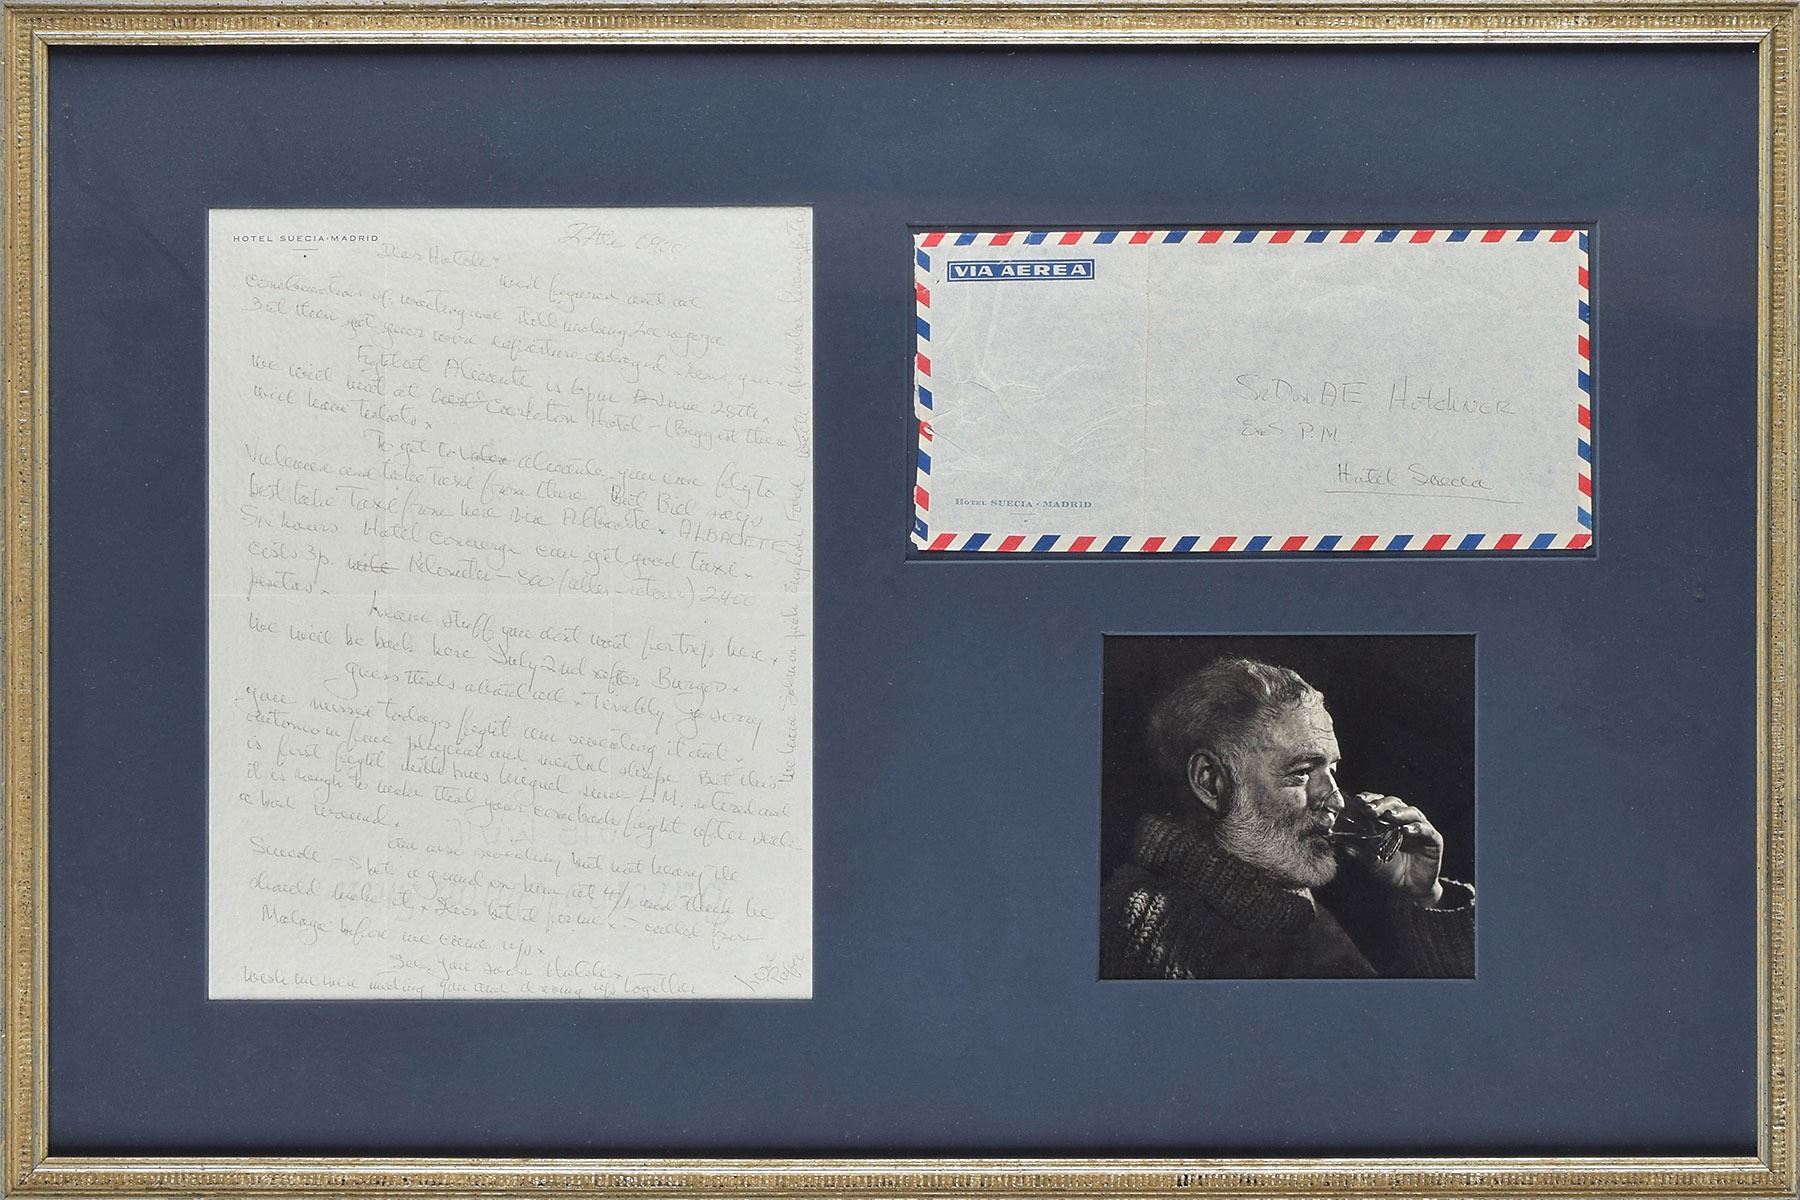 HOTEL SUECIA-MADRID
27th 0900
Dear Hotch:
We'd figured out all
combinations of meeting and still making Zaragoza
and then got your wire
Fight at Alicante is 6 pm June 28th x
we will meet at Carlton Hotel - (Biggest there
will have tickets x
To get to Alicante you can fly to
Valencia and take taxi from there But Bill says
best take taxi from here via Albacete x ALBACETE
Six hours Hotel Concierge can get good taxi x
costs 3p. Kilometer - 800 (aller-retour) 2400
pesetas x
Leave stuff you don't want for trip here x
We will be back here July 2nd after Burgos x
guess that's about all x Terribly sorry
you missed todays fight am sweating it out x
Antonio in fine physical and mental shape But this
is first fight with Luis Miguel since L.M. retired and
it is rough to make that your comeback fight after such
a bad wound.
am also sweating but not heavy the
Swede - bet a grand on him at 4/1 and think he
should make it x
Malaga before we came up x
See you soon Hotch x
wish we were meeting you and driving up together
Best
Papa
VIA AEREA
Sr Don A E HOTCHNER
E.S. P.M.
Hotel Suecia
HOTEL SUECIA - MADRID